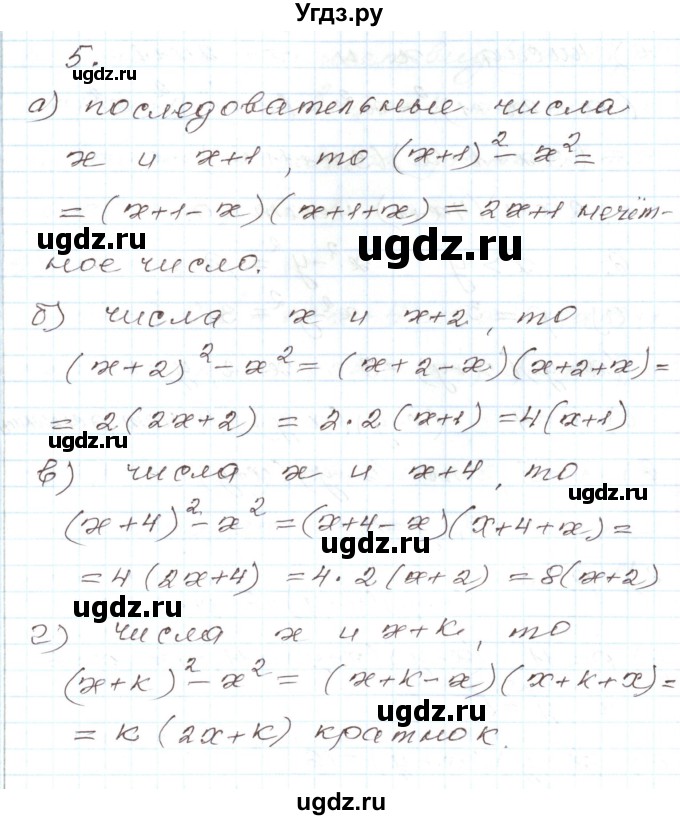 Угдз.ру
5.
ugdz.ru
а) последовательные числа
x и x+1, то (x+1)² - x² =
= (x+1-x)(x+1+x) = 2x+1 нечёт-
ugdz.ru
ugdz.ru
ное число.
б) числа x и x+2, то
(x+2)² - x² = (x+2-x)(x+2+x) =
= 2(2x+2) = 2·2(x+1) = 4(x+1)
ugdz.ru
в) числа x и x+4, то
ugdz.ru
(x+4)² - x² = (x+4-x)(x+4+x) =
ugdz.ru
= 4(2x+4) = 4·2(x+2) = 8(x+2)
ugdz.ru
г) числа x и x+к, то
(x+к)² - x² = (x+к-x)(x+к+x) =
ugdz.ru
= к(2x+к) кратно к.
ugdz.ru